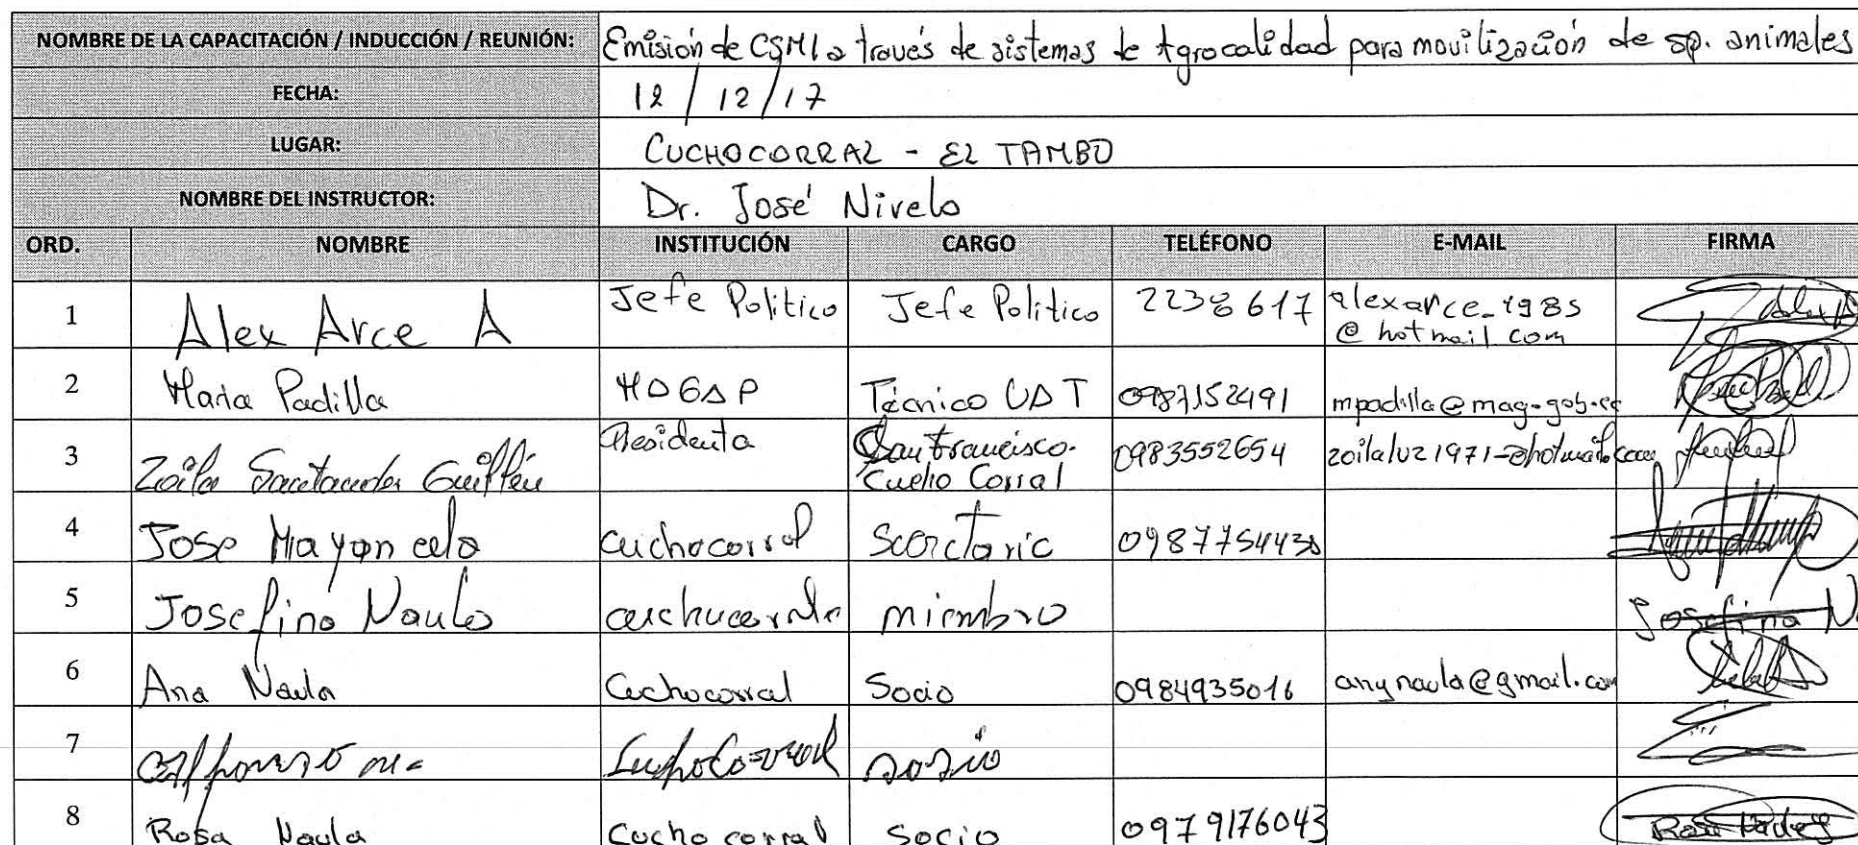 NOMBRE DE LA CAPACITACIÓN / INDUCCIÓN / REUNIÓN: Emisión de CSMI a través de sistemas de Agrocalidad para movilización de sp. animales
FECHA: 12/12/17
LUGAR: CUCHOCORRAL - EL TAMBO
NOMBRE DEL INSTRUCTOR: Dr. José Nivelo
ORD. NOMBRE INSTITUCIÓN CARGO TELÉFONO E-MAIL FIRMA
1 Alex Arce A Jefe Politico Jefe Politico 2238617 alexarce_1985
@hotmail com
2 Maria Padilla MAGAP Técnico UAT 0987152491 mpadilla@mag.gob.ec
3 Zoila Santander Guillén Presidenta San Francisco.
Cucho Corral 0983552654 zoilaluz1971-@hotmail.com
4 Jose Mayancela cuchocorral 098775443
5 Josefina Naula miembro Josefina
6 Ana Naula Cuchocorral Socio 0984935016 anynaula@gmail.com
7
8 Rosa Naula Cucho corral Socio 0979176043